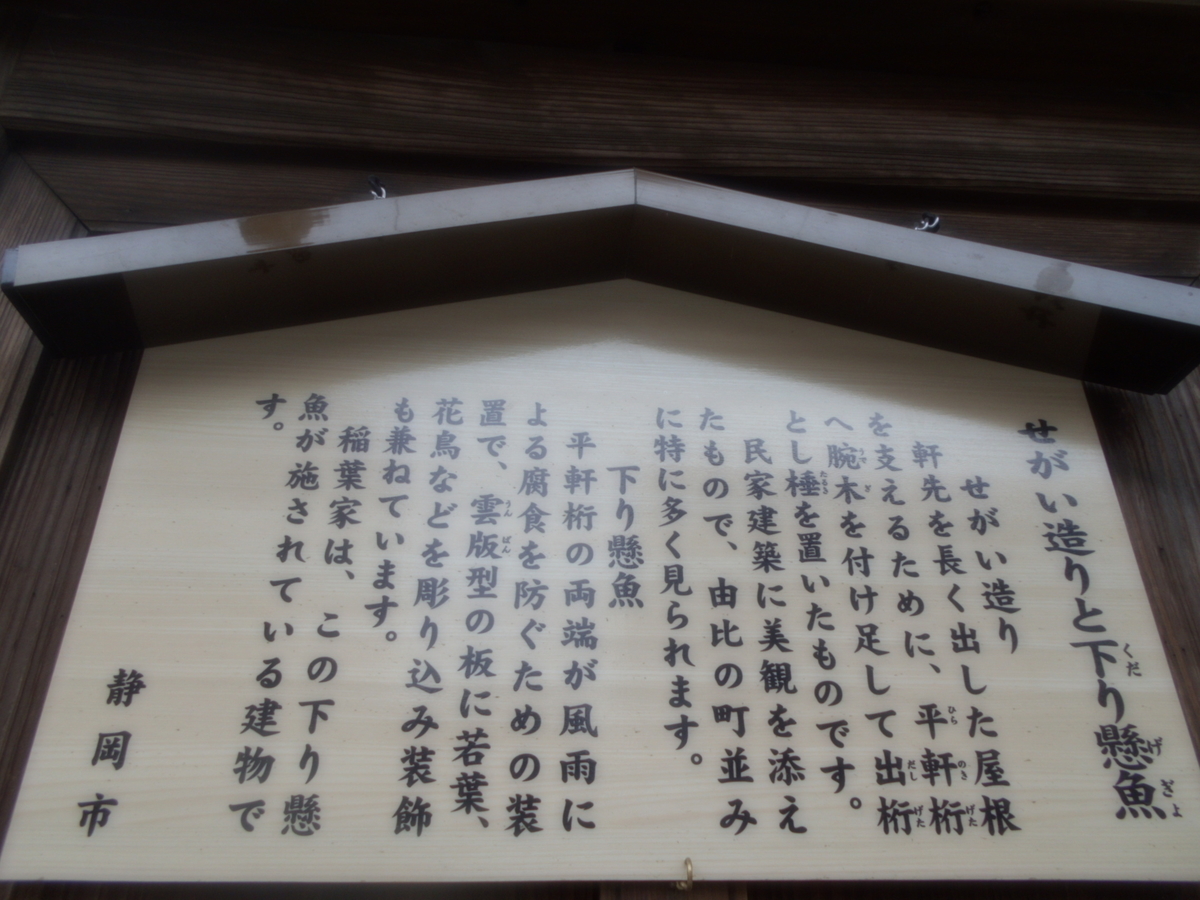 せがい造りと下り懸魚
せがい造り
軒先を長く出した屋根
を支えるために、平軒桁
へ腕木を付け足して出桁
とし棰を置いたものです。
民家建築に美観を添え
たもので、由比の町並み
に特に多く見られます。
下り懸魚
平軒桁の両端が風雨に
よる腐食を防ぐための装
置で、雲版型の板に若葉、
花鳥などを彫り込み装飾
も兼ねています。
稲葉家は、この下り懸
魚が施されている建物で
す。
静岡市